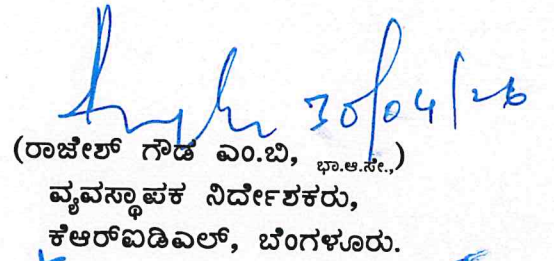 30/04/26
(ರಾಜೇಶ್ ಗೌಡ ಎಂ.ಬಿ, ಭಾ.ಆ.ಸೇ.,)
ವ್ಯವಸ್ಥಾಪಕ ನಿರ್ದೇಶಕರು,
ಕೆಆರ್‌ಐಡಿಎಲ್, ಬೆಂಗಳೂರು.